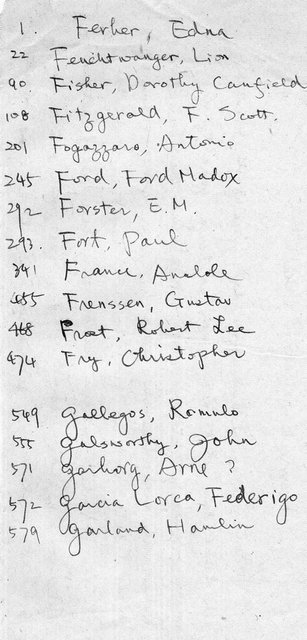 1. Ferher, Edna
22 Feuchtwanger, Lion
90. Fisher, Dorothy Canfield
108 Fitzgerald, F. Scott.
201 Fogazzaro, Antonio
245 Ford, Ford Madox
292 Forster, E.M.
293. Fort, Paul
341 France, Anatole
455 Frenssen, Gustav
468 Frost, Robert Lee
474 Fry, Christopher
549 Gallegos, Romulo
555 Galsworthy, John
571 Garborg, Arne ?
572 Garcia Lorca, Federigo
579 Garland, Hamlin